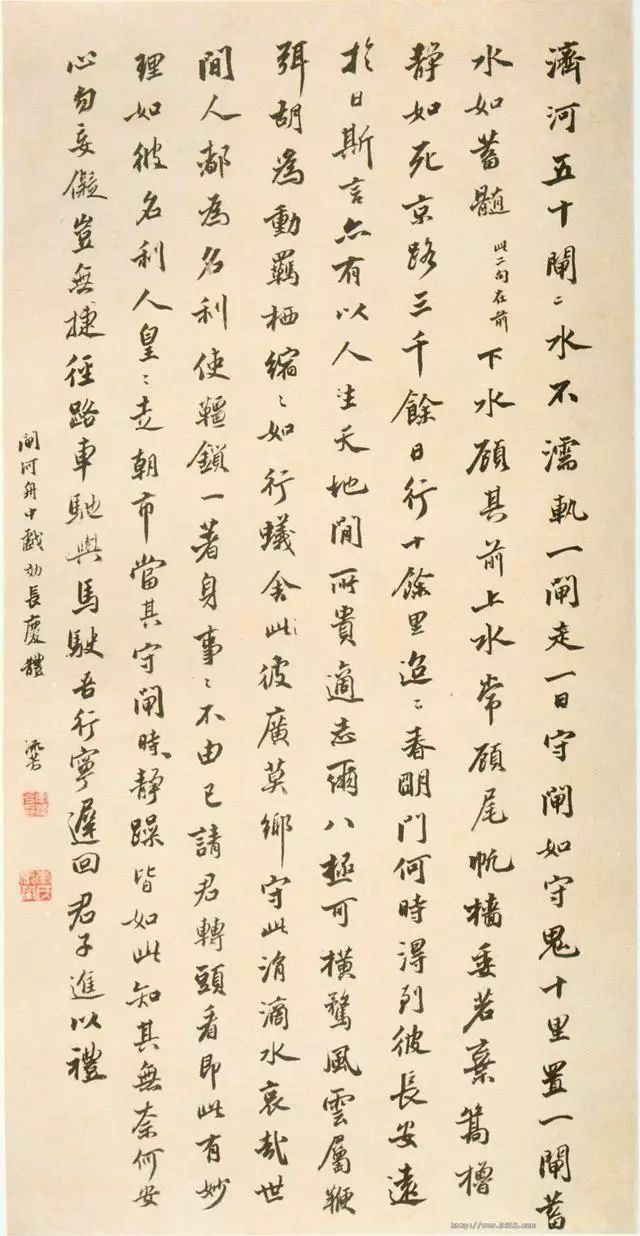 濟河五十閘〻水不濡軌一閘走一日守閘如守鬼十里置一閘蓄
水如蓄髓此二句在前下水顧其前上水常顧尾帆檣垂若棄篙櫓
靜如死京路三千餘日行十餘里迢〻春明門何時得到彼長安遠
於日斯言亦有以人生天地間所貴適志爾八極可橫騖風雲屬鞭
弭胡為動羈栖縮〻如行蟻舍此彼廣莫鄉守此涓滴水哀哉世
間人都為名利使韁鎖一著身事〻不由己請君轉頭看即此有妙
理如彼名利人皇〻走朝市當其守閘時靜躁皆如此知其無奈何安
心勿妄儗豈無捷徑路車馳與馬駛吾行寧遲回君子進以禮
閘河舟中戲効長慶體
http://www.9610.com